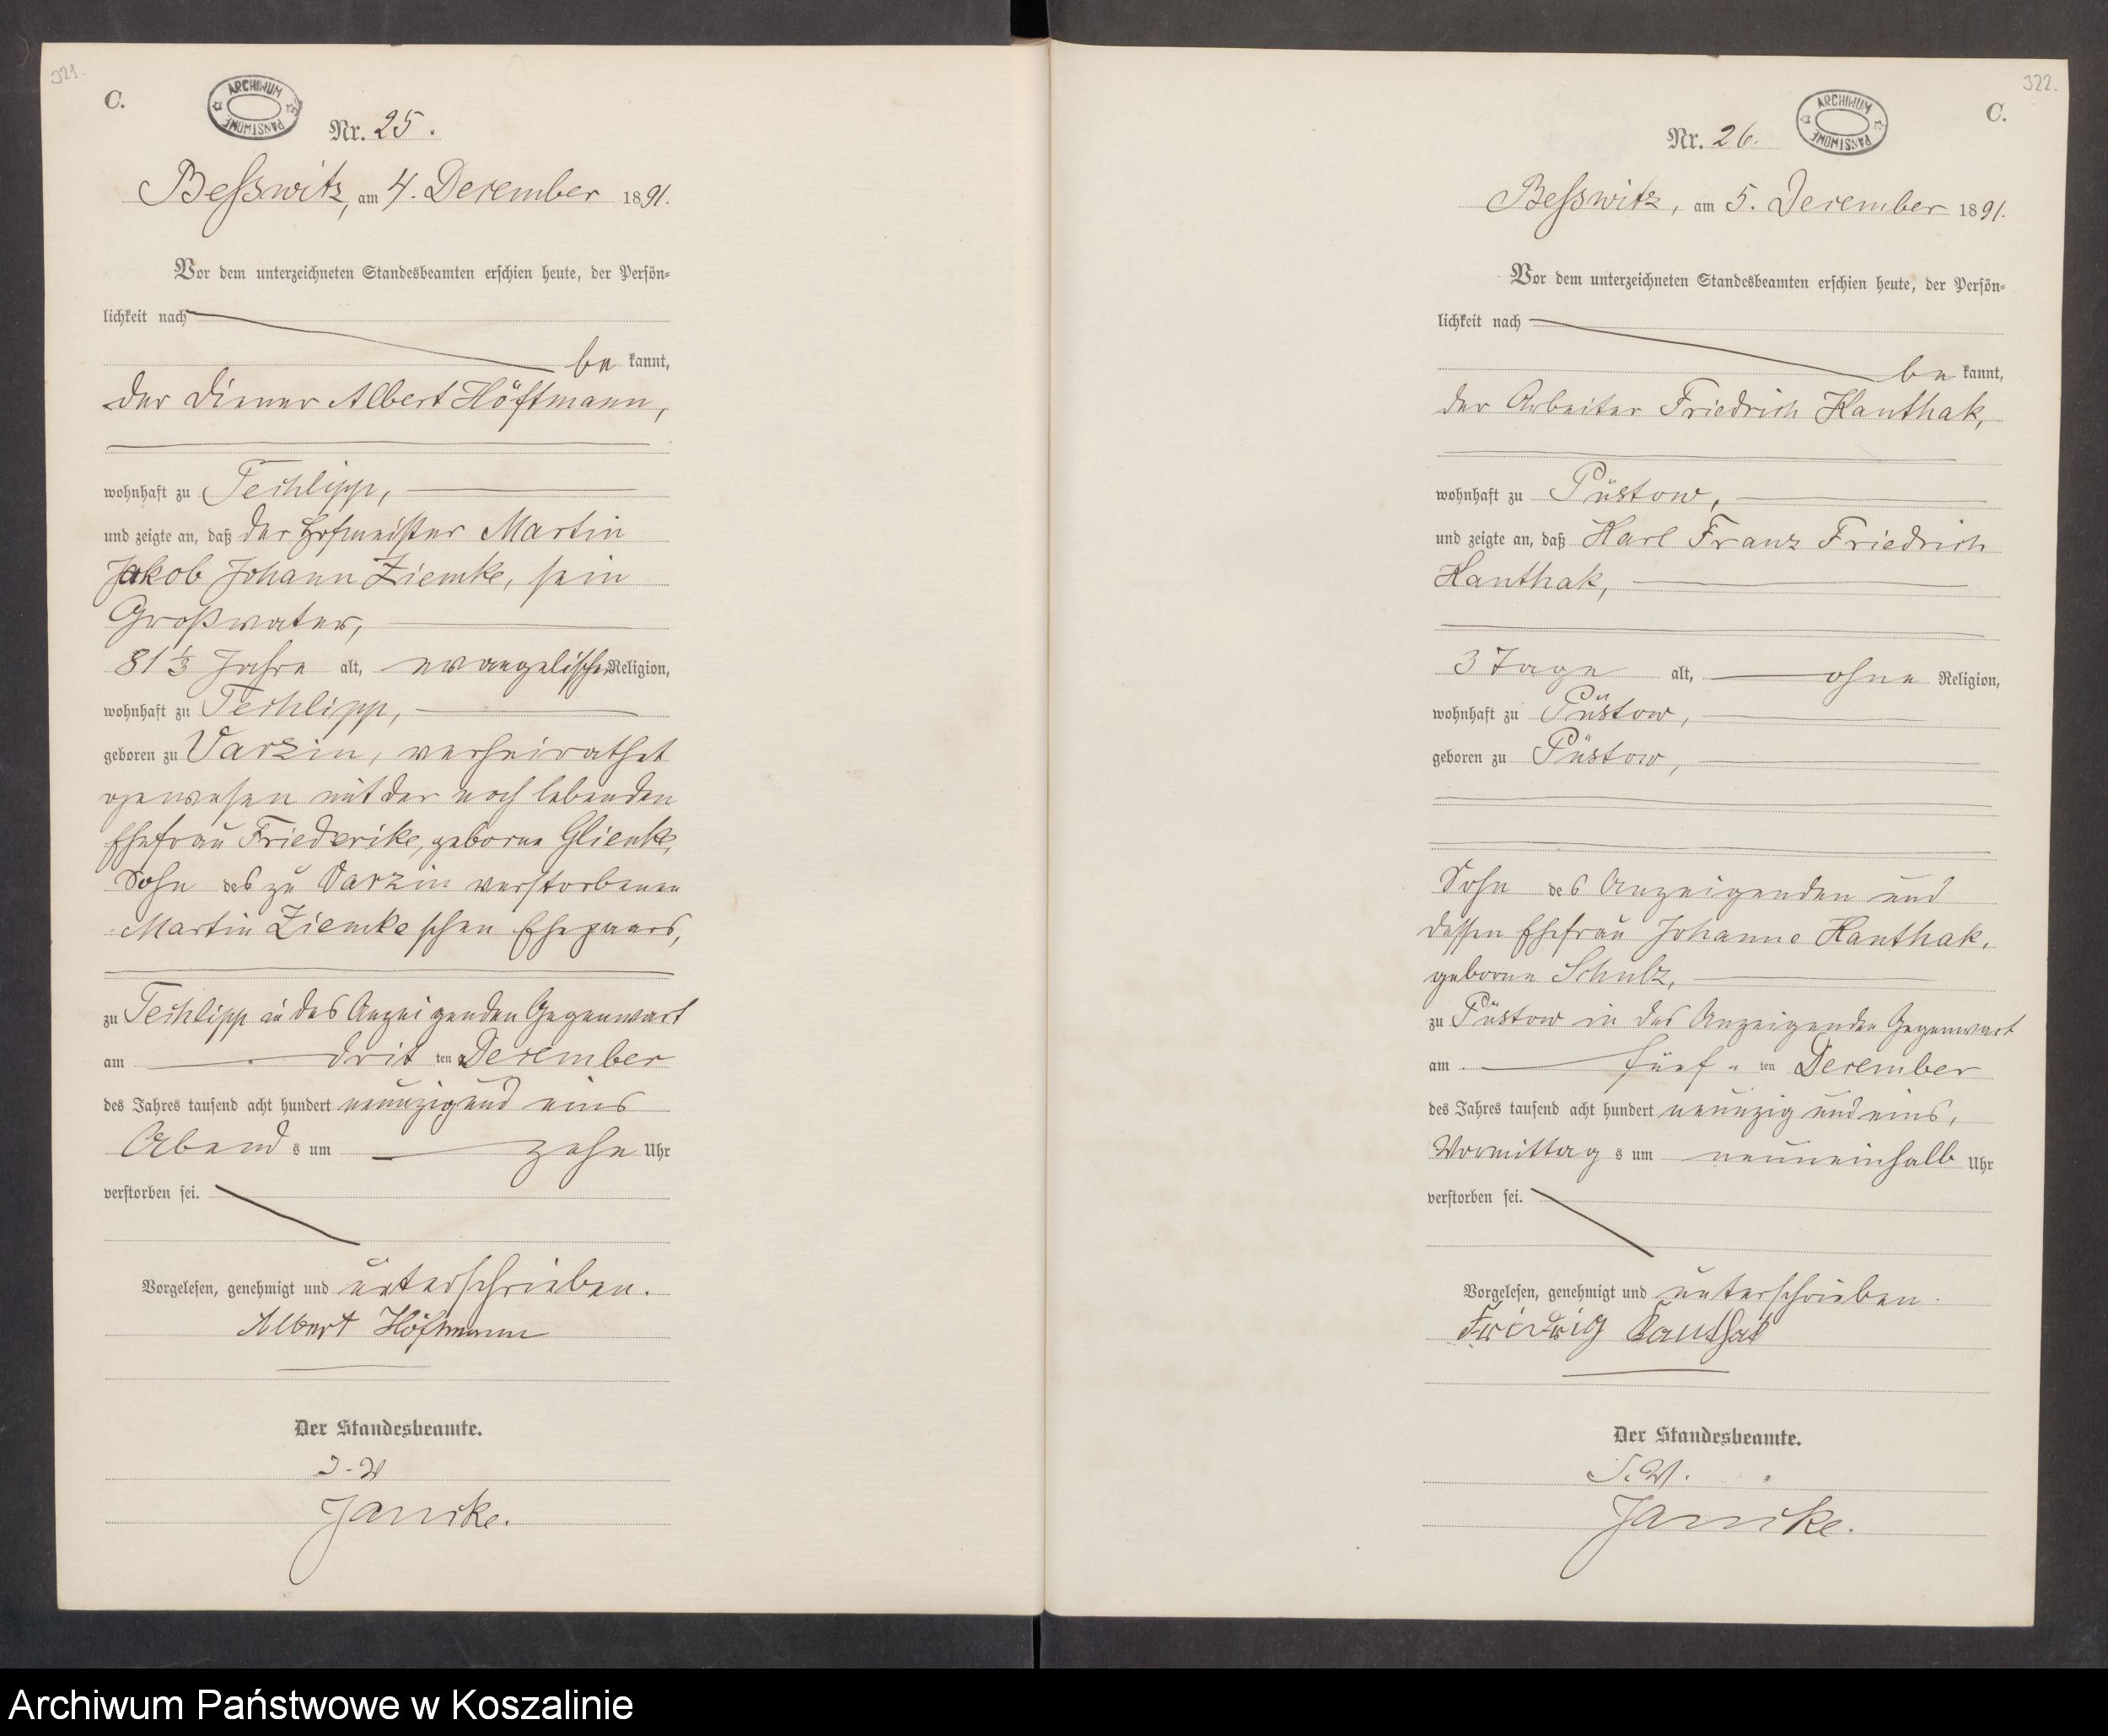 321.
C.
ARCHIWUM PAŃSTWOWE
Nr. 25.
Beßwitz, am 4. December 1891.
Vor dem unterzeichneten Standesbeamten erschien heute, der Persön-
lichkeit nach
be kannt,
der Diener Albert Höftmann,
wohnhaft zu Techlipp,
und zeigte an, daß der Hofmeister Martin
Jakob Johann Ziemke, sein
Großvater,
81 1/3 Jahre alt, evangelischer Religion,
wohnhaft zu Techlipp,
geboren zu Varzin, verheirathet
gewesen mit der noch lebenden
Ehefrau Friederike, geborne Glienke,
Sohn des zu Varzin verstorbenen
Martin Ziemke schen Ehepaars,
zu Techlipp in des Anzeigenden Gegenwart
am drit ten December
des Jahres tausend acht hundert neunzig und eins
Abend s um zehn Uhr
verstorben sei.
Vorgelesen, genehmigt und unterschrieben.
Albert Höftmann
Der Standesbeamte.
J. V
Janicke.
322.
C.
ARCHIWUM PAŃSTWOWE
Nr. 26.
Beßwitz, am 5. December 1891.
Vor dem unterzeichneten Standesbeamten erschien heute, der Persön-
lichkeit nach
be kannt,
der Arbeiter Friedrich Kanthak,
wohnhaft zu Püstow,
und zeigte an, daß Karl Franz Friedrich
Kanthak,
3 Tage alt, ohne Religion,
wohnhaft zu Püstow,
geboren zu Püstow,
Sohn des Anzeigenden und
dessen Ehefrau Johanne Kanthak,
geborne Schulz,
zu Püstow in des Anzeigenden Gegenwart
am fünf ten December
des Jahres tausend acht hundert neunzig und eins,
Vormittag s um neuneinhalb Uhr
verstorben sei.
Vorgelesen, genehmigt und unterschrieben.
Fridrig Kanthak
Der Standesbeamte.
J. V.
Janicke.
Archiwum Państwowe w Koszalinie